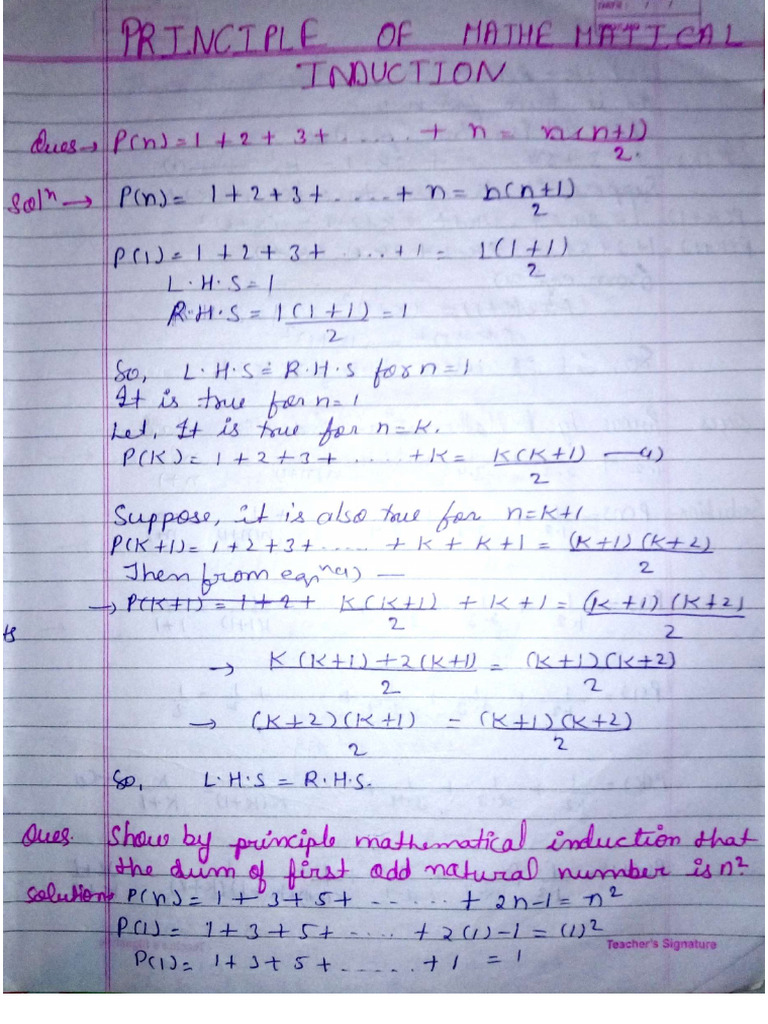 PRINCIPLE OF MATHEMATICAL
INDUCTION
Ques→ P(n)=1+2+3+......+n = n(n+1)/2.
Solⁿ → P(n)= 1+2+3+.....+n = n(n+1)/2
P(1)=1+2+3+.....+1 = 1(1+1)/2
L.H.S=1
R.H.S = 1(1+1)/2 =1
So, L.H.S = R.H.S for n=1
It is true for n=1
Let, It is true for n=K.
P(K)=1+2+3+......+K= K(K+1)/2 —(1)
Suppose, it is also true for n=K+1
P(K+1)=1+2+3+......+K+K+1 = (K+1)(K+2)/2
Then from eqⁿ(1) —
→ P(K+1) = 1+2+ K(K+1)/2 +K+1 = (K+1)(K+2)/2
→ K(K+1)+2(K+1)/2 = (K+1)(K+2)/2
→ (K+2)(K+1)/2 = (K+1)(K+2)/2
So, L.H.S = R.H.S.
Ques. Show by principle mathematical induction that
the dum of first odd natural number is n²
Solution→ P(n)= 1+3+5+......+2n-1=n²
P(1)= 1+3+5+.....+2(1)-1=(1)²
Teacher's Signature
P(1)= 1+3+5+......+1 = 1